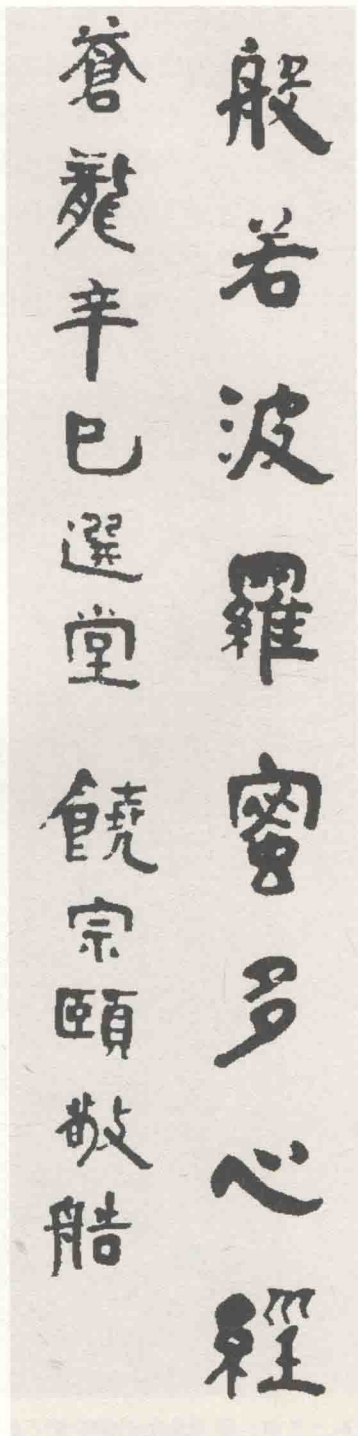 般若波羅蜜多心經
蒼龍辛巳選堂 饒宗頤敬造